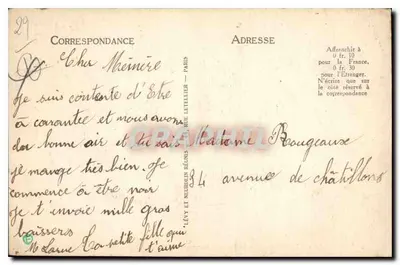 29
CORRESPONDANCE
ADRESSE
Affranchir à
0 fr. 10
pour la France,
0 fr. 30
pour l'Etranger.
N'écrire que sur
le côté réservé à
la correspondance
Cher Mémère
Je suis contente d'Etre
à carantec et nous avons
du bon air et tu sais
je mange très bien. Je
commence à être noir
Je t'envoie mille gros
baisers
ta petite fille qui
t'aime
LÉVY ET NEURDEIN RÉUNIS
RUE LETELLIER — PARIS
Madame Rougeaux
24 avenue de châtillons